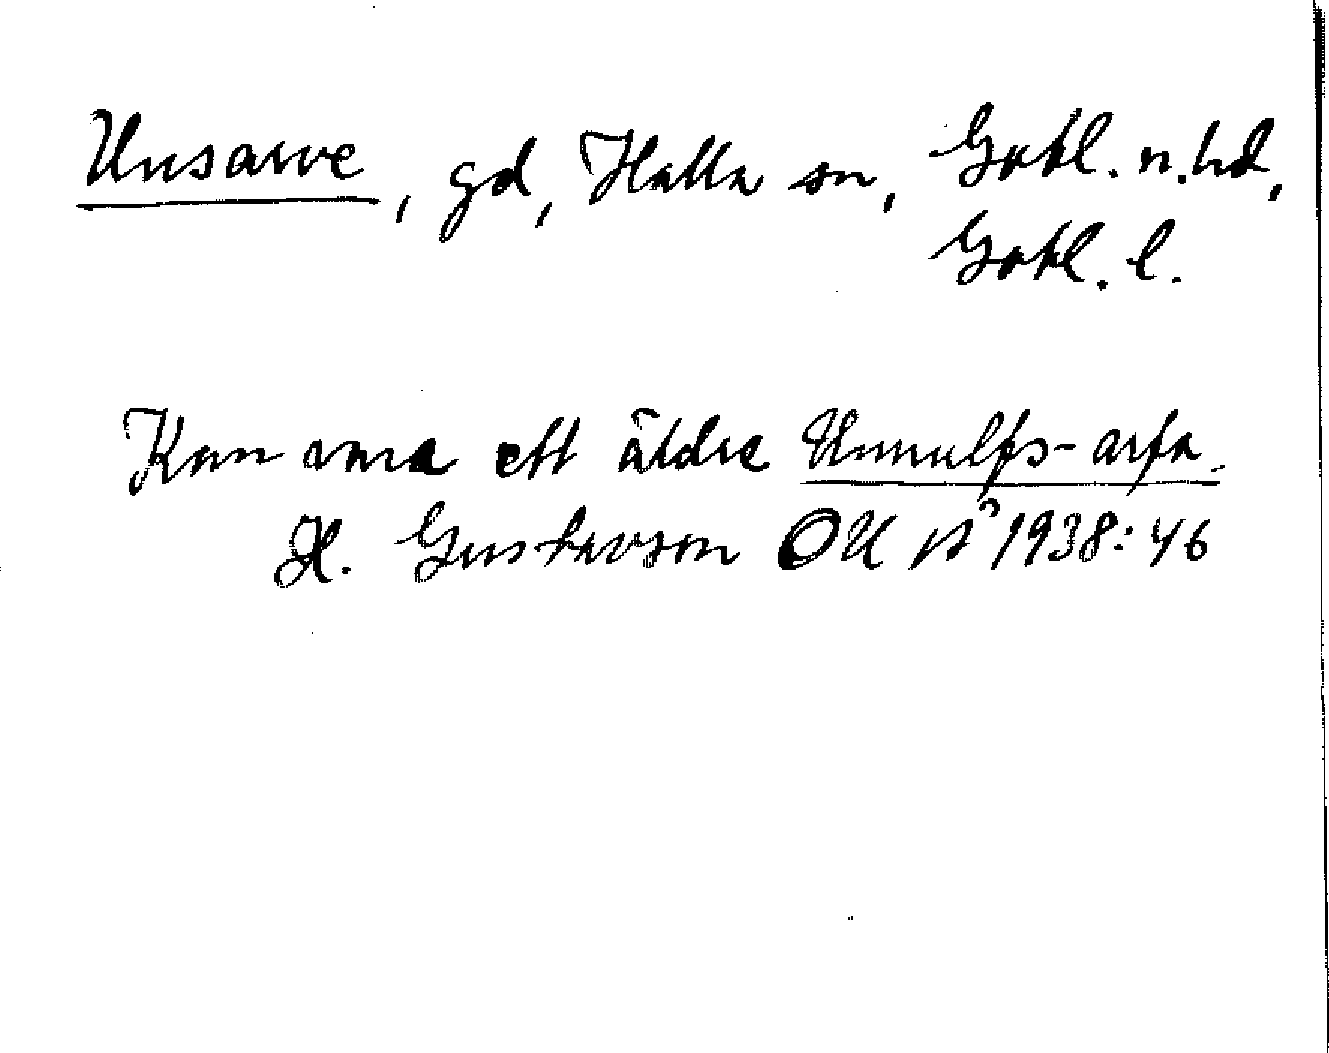 Unsarve, gd, Halla sn, Gotl. n. hd,
Gotl. l.
Kan vara ett äldre Unnulfs-arfa.
H. Gustavson OUÅ 1938: 46